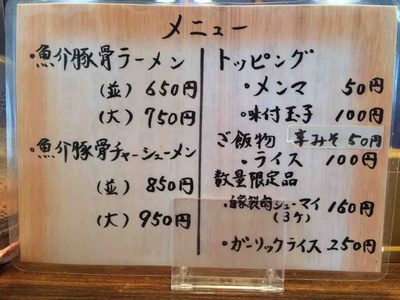 メニュー
・魚介豚骨ラーメン
(並) 650円
(大) 750円
・魚介豚骨チャーシューメン
(並) 850円
(大) 950円
トッピング
・メンマ 50円
・味付玉子 100円
ご飯物 辛みそ 50円
・ライス 100円
数量限定品
・自家製肉シューマイ 160円
(3ケ)
・ガーリックライス 250円